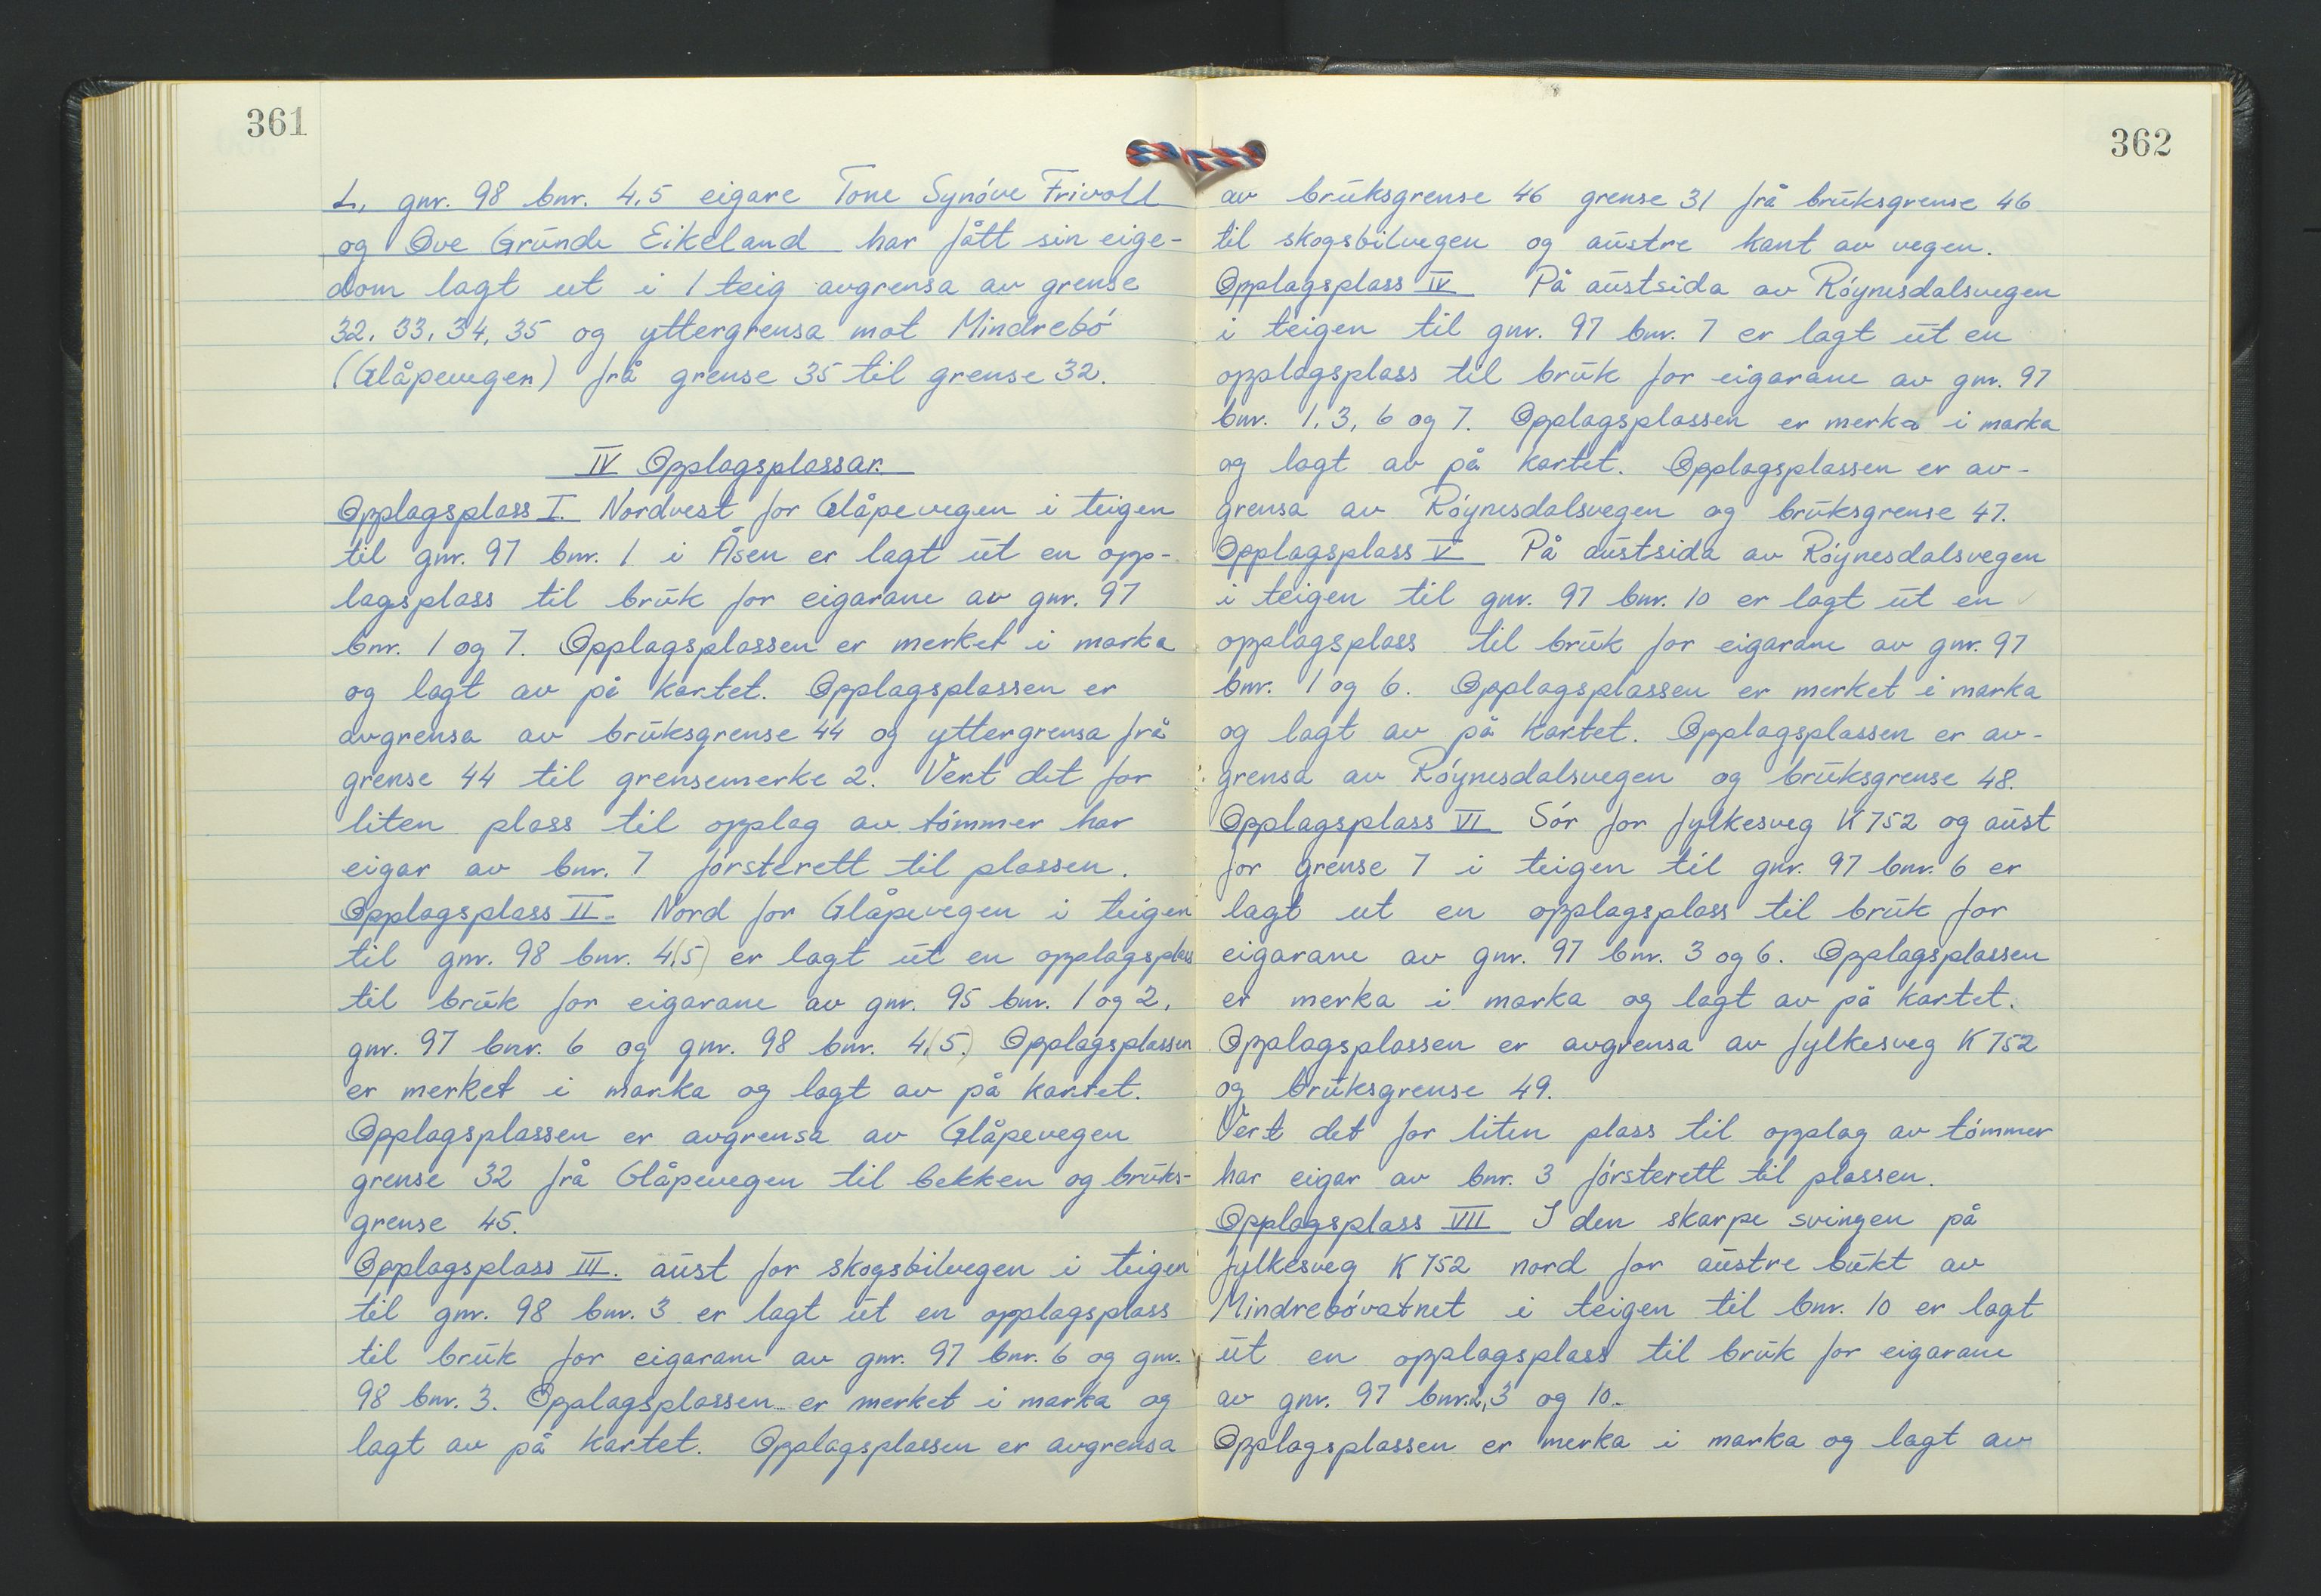 361
L. gnr. 98 bnr. 4,5 eigare Tone Synóve Frivoll
og Ove Grúnde Eikeland har fått sin eige-
dom lagt ut i 1 teig avgrensa av grense
32, 33, 34, 35 og yttergrensa mot Mindrebó
(Glåpevegen) frå grense 35 til grense 32.
IV Opplagsplassar.
Opplagsplass I. Nordvest for Glåpevegen i teigen
til gnr. 97 bnr. 1 i Åsen er lagt ut en opp-
lagsplass til bruk for eigarane av gnr. 97
bnr. 1 og 7. Opplagsplassen er merket i marka
og lagt av på kartet. Opplagsplassen er
avgrensa av bruksgrense 44 og yttergrensa frå
grense 44 til grensemerke 2. Vert det for
liten plass til opplag av tómmer har
eigar av bnr. 7 fórsterett til plassen.
Opplagsplass II. Nord for Glåpevegen i teigen
til gnr. 98 bnr. 4(5) er lagt ut en opplagsplass
til bruk for eigarane av gnr. 95 bnr. 1 og 2,
gnr. 97 bnr. 6 og gnr. 98 bnr. 4,(5.) Opplagsplassen
er merket i marka og lagt av på kartet.
Opplagsplassen er avgrensa av Glåpevegen
grense 32 frå Glåpevegen til bekken og bruks-
grense 45.
Opplagsplass III. aust for skogsbilvegen i teigen
til gnr. 98 bnr. 3 er lagt ut en opplagsplass
til bruk for eigarane av gnr. 97 bnr. 6 og gnr.
98 bnr. 3. Opplagsplassen er merket i marka og
lagt av på kartet. Opplagsplassen er avgrensa
362
av bruksgrense 46 grense 31 frå bruksgrense 46
til skogsbilvegen og austre kant av vegen.
Opplagsplass IV På austsida av Róynesdalsvegen
i teigen til gnr. 97 bnr. 7 er lagt ut en
opplagsplass til bruk for eigarane av gnr. 97
bnr. 1, 3, 6 og 7. Opplagsplassen er merka i marka
og lagt av på kartet. Opplagsplassen er av-
grensa av Róynesdalsvegen og bruksgrense 47.
Opplagsplass V På austsida av Róynesdalsvegen
i teigen til gnr. 97 bnr. 10 er lagt ut en
opplagsplass til bruk for eigarane av gnr. 97
bnr. 1 og 6. Opplagsplassen er merket i marka
og lagt av på kartet. Opplagsplassen er av-
grensa av Róynesdalsvegen og bruksgrense 48.
Opplagsplass VI Sór for fylkesveg K 752 og aust
for grense 7 i teigen til gnr. 97 bnr. 6 er
lagt ut en opplagsplass til bruk for
eigarane av gnr. 97 bnr. 3 og 6. Opplagsplassen
er merka i marka og lagt av på kartet.
Opplagsplassen er avgrensa av fylkesveg K 752
og bruksgrense 49.
Vert det for liten plass til opplag av tómmer
har eigar av bnr. 3 fórsterett til plassen.
Opplagsplass VII I den skarpe svingen på
fylkesveg K 752 nord for austre bukt av
Mindrebóvatnet i teigen til bnr. 10 er lagt
ut en opplagsplass til bruk for eigarane
av gnr. 97 bnr. 2, 3 og 10.
Opplagsplassen er merka i marka og lagt av